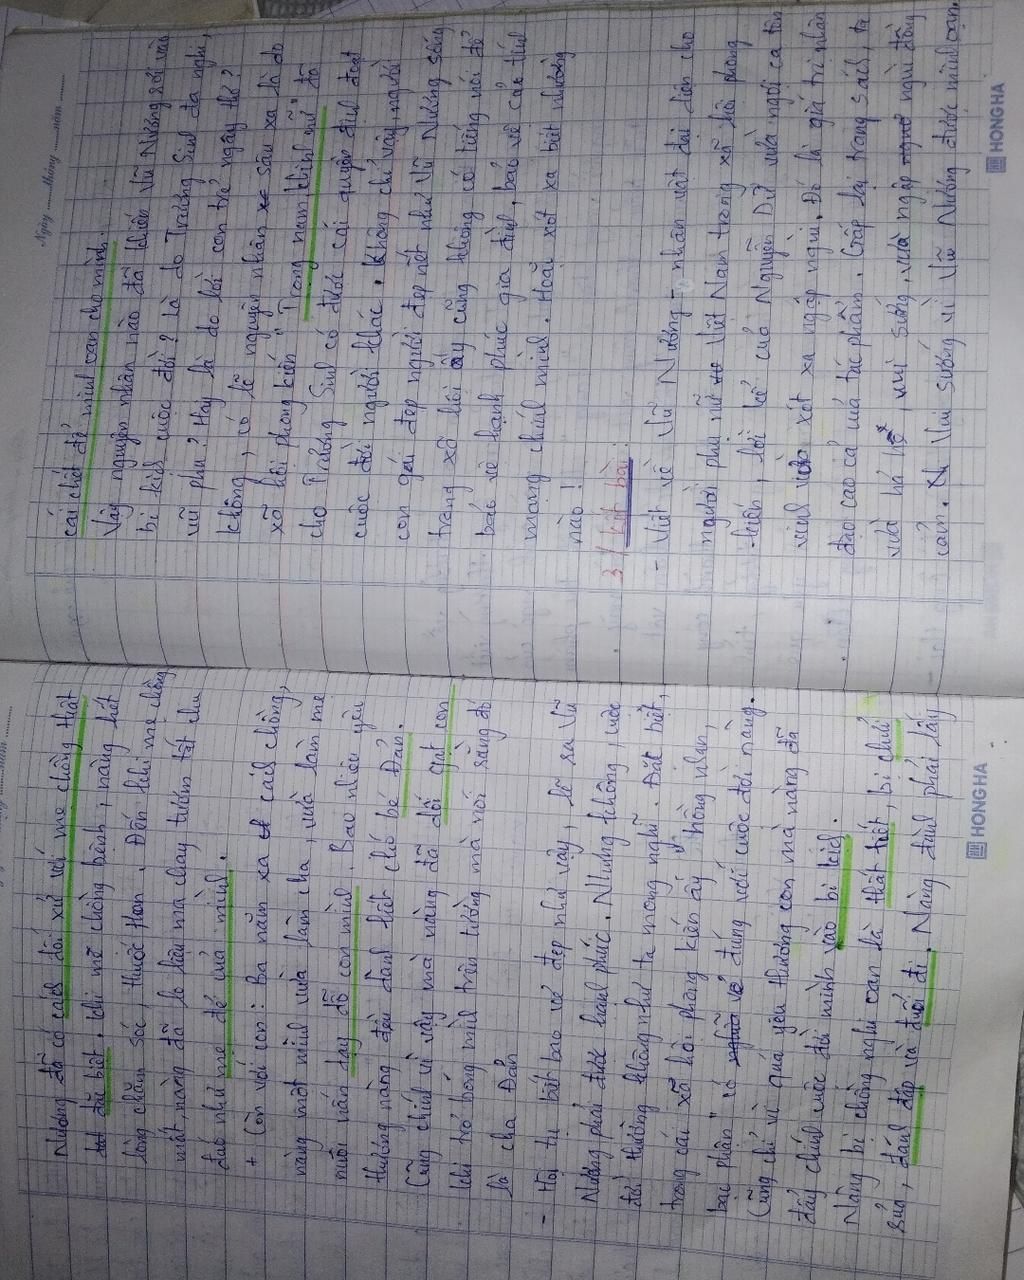 Nương đã có cách đối xử với mẹ chồng thật
đặc biệt. Khi mẹ chồng bệnh, nàng hết
lòng chăm sóc, thuốc thang. Đến khi mẹ chồng
mất, nàng đã lo liệu ma chay, tươm tất chu
đáo như mẹ đẻ của mình.
+ Còn với con: Ba năm xa cách chồng,
nàng một mình vừa làm cha, vừa làm mẹ
nuôi nấng dạy dỗ con mình. Bao nhiêu yêu
thương nàng đều dành hết cho bé Đản.
Cũng chính vì vậy mà nàng đã dối gạt con
khi trỏ bóng mình trên tường mà nói rằng đó
là cha Đản
- Hội tụ biết bao vẻ đẹp như vậy, lẽ ra Vũ
Nương phải được hạnh phúc. Nhưng không, cuộc
đời thường không như ta mong nghĩ. Đặc biệt,
trong cái xã hội phong kiến ấy "hồng nhan,
bạc phận" có đúng với cuộc đời nàng.
Cũng chỉ vì quá yêu thương con mà nàng đã
đẩy chính cuộc đời mình vào bi kịch.
Nàng bị chồng nghi oan là thất tiết, bị chửi
rủa, đánh đập và đuổi đi. Nàng đành phải lấy
HONG HA
Ngày ... tháng ... năm ...
cái chết để minh oan cho mình.
Vậy nguyên nhân nào đã khiến Vũ Nương rơi vào
bi kịch cuộc đời? Là do Trương Sinh đa nghi,
vũ phu? Hay là do lời con trẻ ngây thơ?
Không, có lẽ nguyên nhân sâu xa là do
xã hội phong kiến "Trọng nam khinh nữ" đã
cho Trương Sinh có được cái quyền định đoạt
cuộc đời người khác. Không chỉ vậy, người
con gái đẹp người đẹp nết như Vũ Nương sống
trong xã hội ấy cũng không có tiếng nói để
bảo vệ hạnh phúc gia đình, bảo vệ cả tính
mạng chính mình. Hoài xót xa biết nhường
nào!
3/ Kết bài:
- Viết về Vũ Nương - nhân vật đại diện cho
người phụ nữ Việt Nam trong xã hội phong
kiến, lời kể của Nguyễn Dữ vừa ngợi ca tôn
vinh vừa xót xa ngậm ngùi. Đó là giá trị nhân
đạo cao cả của tác phẩm. Gấp lại trang sách, ta
vừa hả hê, vui sướng, vừa ngậm ngùi đồng
cảm. Vui sướng vì Vũ Nương được minh oan,
HONG HA